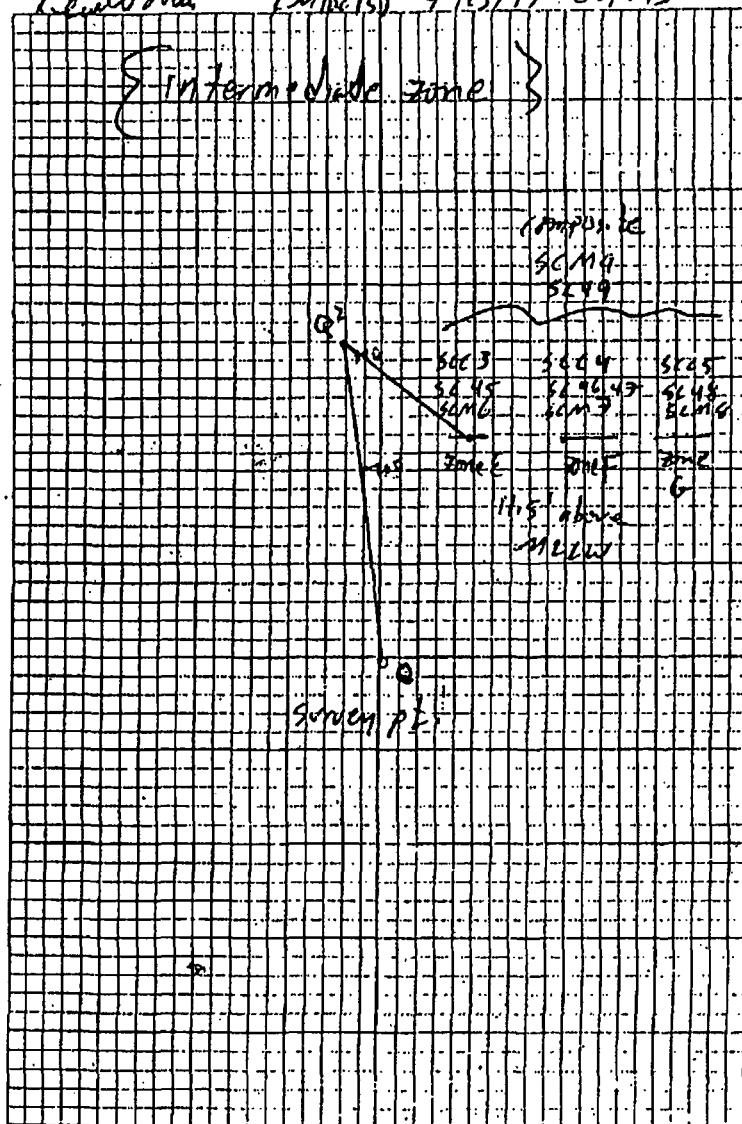 { intermediate zone }
composite
SCM9
SC49
Q²
SCC3 SCC4 SCC5
SC45 SC46,47 SC48
SCM6 SCM7 SCM8
zone E zone F zone
G
11.5' above
MLLW
Q
survey pt.